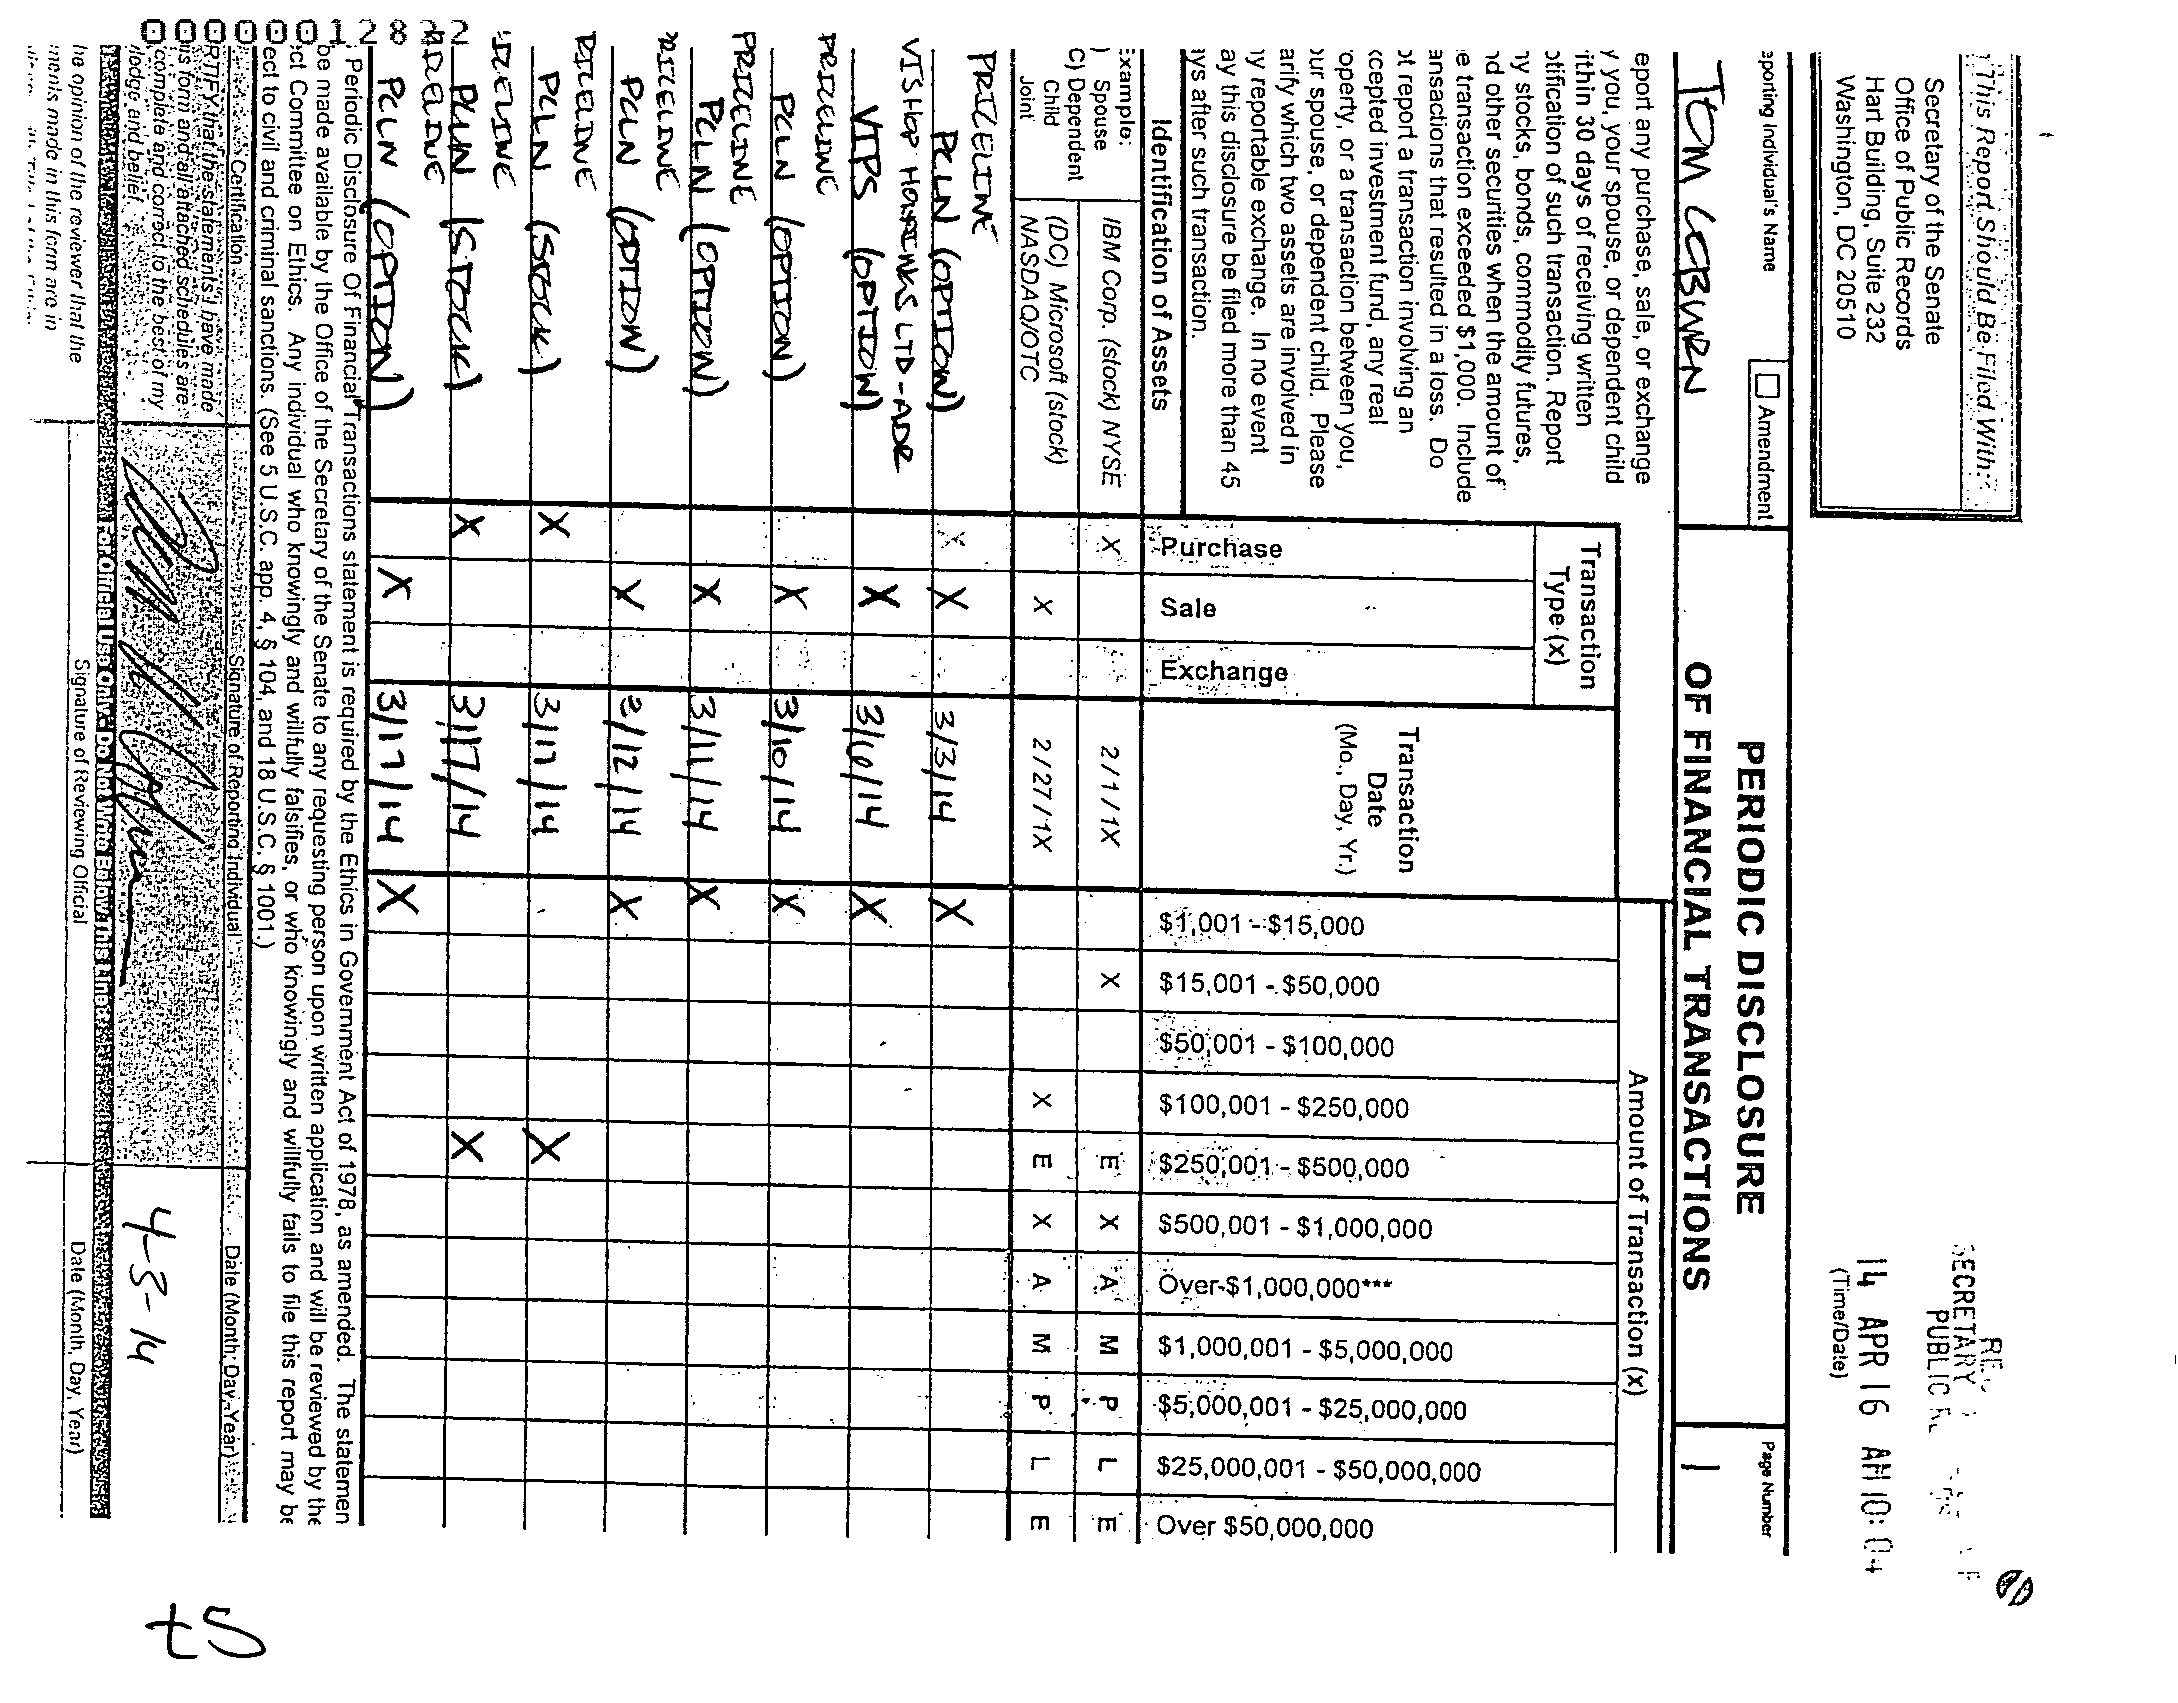 This Report Should Be Filed With:
Secretary of the Senate
Office of Public Records
Hart Building, Suite 232
Washington, DC 20510
SECRETARY
PUBLIC
14 APR 16 AM 10: 04
(Time/Date)
eporting Individual's Name
Amendment
TOM COBURN
PERIODIC DISCLOSURE
OF FINANCIAL TRANSACTIONS
Page Number
1
eport any purchase, sale, or exchange
y you, your spouse, or dependent child
ithin 30 days of receiving written
otification of such transaction. Report
ny stocks, bonds, commodity futures,
nd other securities when the amount of
e transaction exceeded $1,000. Include
ansactions that resulted in a loss. Do
ot report a transaction involving an
xcepted investment fund, any real
operty, or a transaction between you,
our spouse, or dependent child. Please
arify which two assets are involved in
ny reportable exchange. In no event
ay this disclosure be filed more than 45
ays after such transaction.
Transaction
Type (x)
Amount of Transaction (x)
Identification of Assets
Purchase
Sale
Exchange
Transaction
Date
(Mo., Day, Yr.)
$1,001 - $15,000
$15,001 - $50,000
$50,001 - $100,000
$100,001 - $250,000
$250,001 - $500,000
$500,001 - $1,000,000
Over $1,000,000***
$1,000,001 - $5,000,000
$5,000,001 - $25,000,000
$25,000,001 - $50,000,000
Over $50,000,000
Example:
) Spouse
C) Dependent
Child
Joint
IBM Corp. (stock) NYSE X 2/1/1X X E X A M P L E
(DC) Microsoft (stock) NASDAQ/OTC X 2/27/1X X E X A M P L E
PRICELINE
PCLN (OPTION) X X 3/3/14 X
VISHOP HOLDINGS LTD-ADR
VIPS (OPTION) X 3/6/14 X
PRICELINE
PCLN (OPTION) X 3/10/14 X
PRICELINE
PCLN (OPTION) X 3/11/14 X
RICELINE
PCLN (OPTION) X 3/12/14 X
RICELINE
PCLN (STOCK) X 3/17/14 X
ICELINE
PCLN (STOCK) X 3/17/14 X
RICELINE
PCLN (OPTION) X 3/17/14 X
Periodic Disclosure Of Financial Transactions statement is required by the Ethics in Government Act of 1978, as amended. The statemen
be made available by the Office of the Secretary of the Senate to any requesting person upon written application and will be reviewed by the
ct Committee on Ethics. Any individual who knowingly and willfully falsifies, or who knowingly and willfully fails to file this report may be
ect to civil and criminal sanctions. (See 5 U.S.C. app. 4, § 104, and 18 U.S.C. § 1001.)
Certification
Signature of Reporting Individual
Date (Month, Day, Year)
RTIFY that the statements I have made
is form and all attached schedules are
complete and correct to the best of my
ledge and belief.
4-8-14
For Official Use Only - Do Not Write Below This Line
he opinion of the reviewer that the
ments made in this form are in
Signature of Reviewing Official
Date (Month, Day, Year)